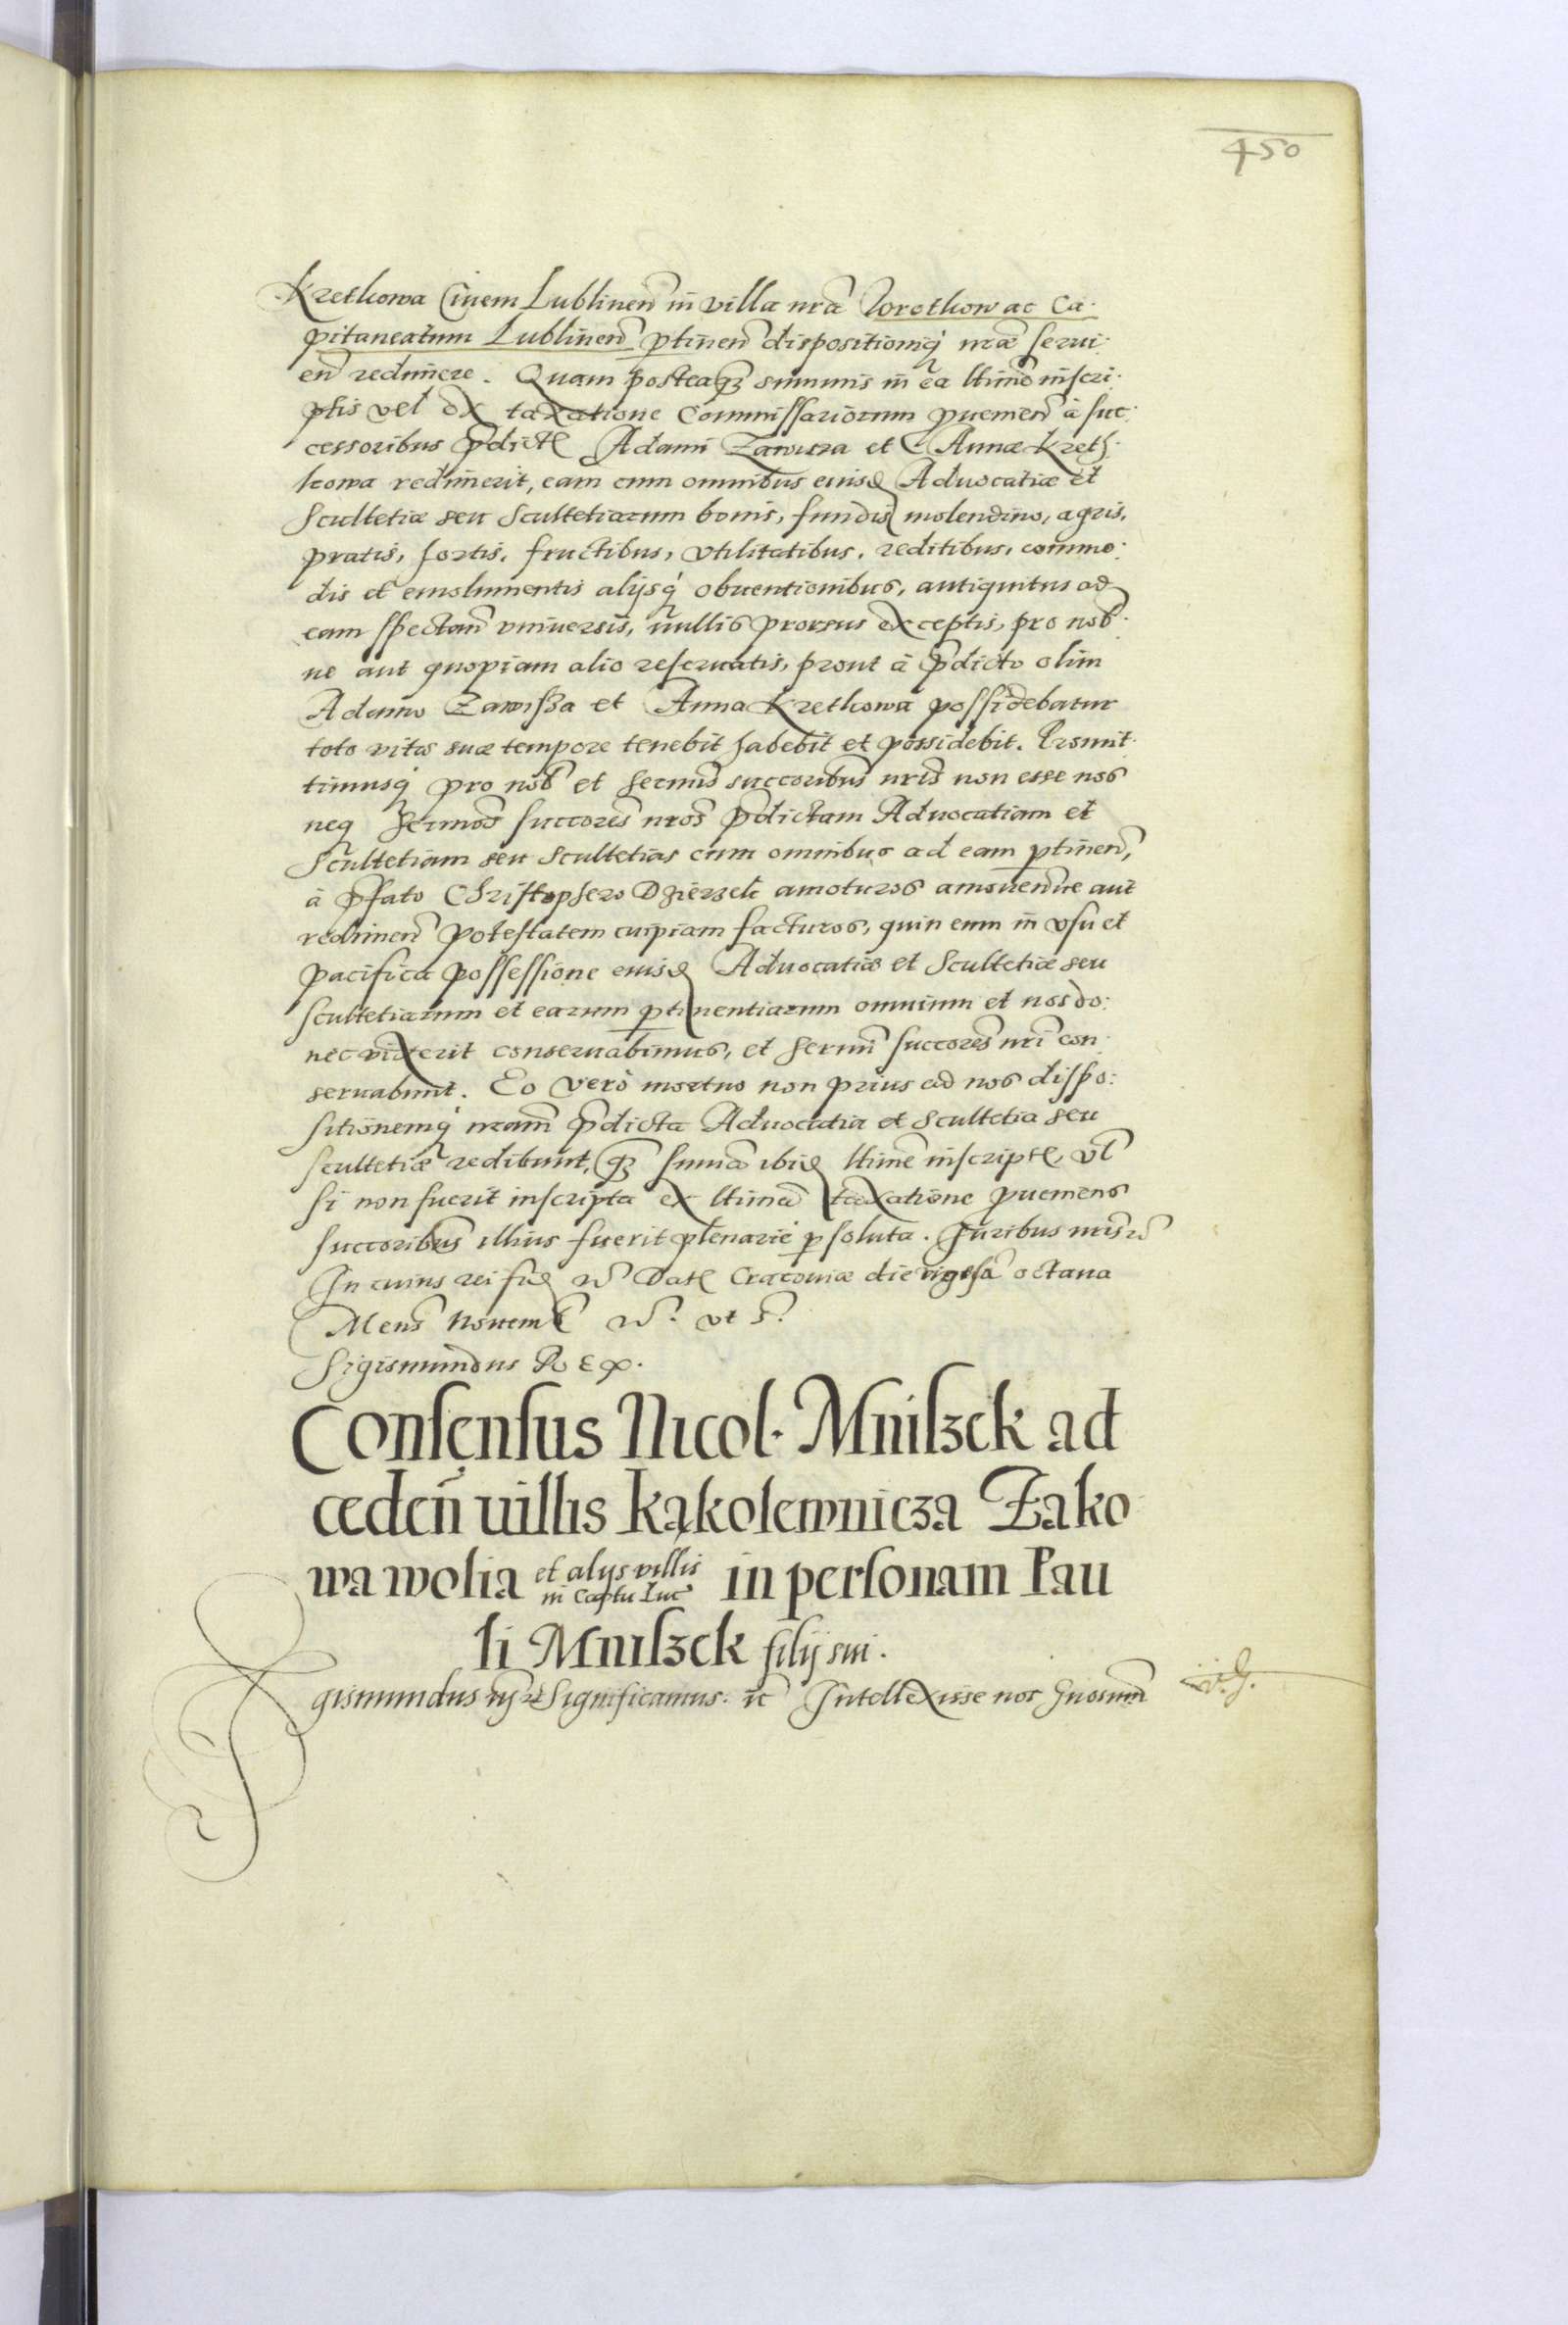 450
Krethowa Ciuem Lublinen̄ in villa nrā Worothow ac Ca-
pitaneatum Lublinen̄ ptinen̄ dispositioniq́ nrae serui-
en̄ redimere. Quam posteaqʒ summis in ea ltimē inscri-
ptis vel ex taxatione Commissariorum puemen̄ à suc-
cessoribus pdictꝭ Adami Zawissa et Annae Kreth-
kowa redimerit, eam cum omnibus eiusd Aduocatiae et
Scultetiae seu Scultetiarum bonis, fundis molendino, agris,
pratis, hortis, fructibus, vtilitatibus, reditibus, commo-
dis et emolumentis alijsq́ obuentionibus, antiquitus ad
eam spectan̄ vniuersis, nullis prorsus exceptis, pro nob̄
ne aut quopiam alio reseruatis, prout à pdicto olim
Adamo Zawissa et Anna Krethowa possidebatur
toto vitae suae tempore tenebit habebit et possidebit. Promit-
timusq́ pro nob̄ et sermis̄ succoribus̄ nris̄ non esse nos
neq sermos̄ succores̄ nros̄ pdictam Aduocatiam et
Scultetiam seu Scultetias cum omnibus ad eam ptinen̄,
à pfato Christophero Dzierzek amoturos amouendiue aut
redimen̄ potestatem cuipiam facturos, quin eum in vsu et
pacifica possessione eiusd Aduocatiae et Scultetiae seu
scultetiarum et earum ptinentiarum omnium et nos do-
nec vixerit conseruabimus, et sermī succores̄ nrī con-
seruabunt. Eo verò mortuo non prius ad nos dispo-
sitionemq́ nram̄ pdicta Aduocatia et Scultetia seu
scultetiae redibunt, qʒ summa ibid ltime inscriptꝭ, vl̄
si non fuerit inscripta ex ltima taxatione puemens
succoribus̄ illius fuerit plenariè psoluta. Iuribus nris rc̄
In cuius rei fid rc̄ Datꝭ Cracouiae die vigesā octaua
Mens̄ Nouemb̄ rc̄. vt s̄.
Sigismundus Rex.
Consensus Nicol. Mniszek ad
ceden̄ uillis kąkolewnicza Zako-
wa wolia et alys villis in Captu Luc̄ in personam Pau
li Mniszek filij sui.
Sigismundus ij rc̄ Significamus. rc̄ Intellexisse nos Gnosum̄